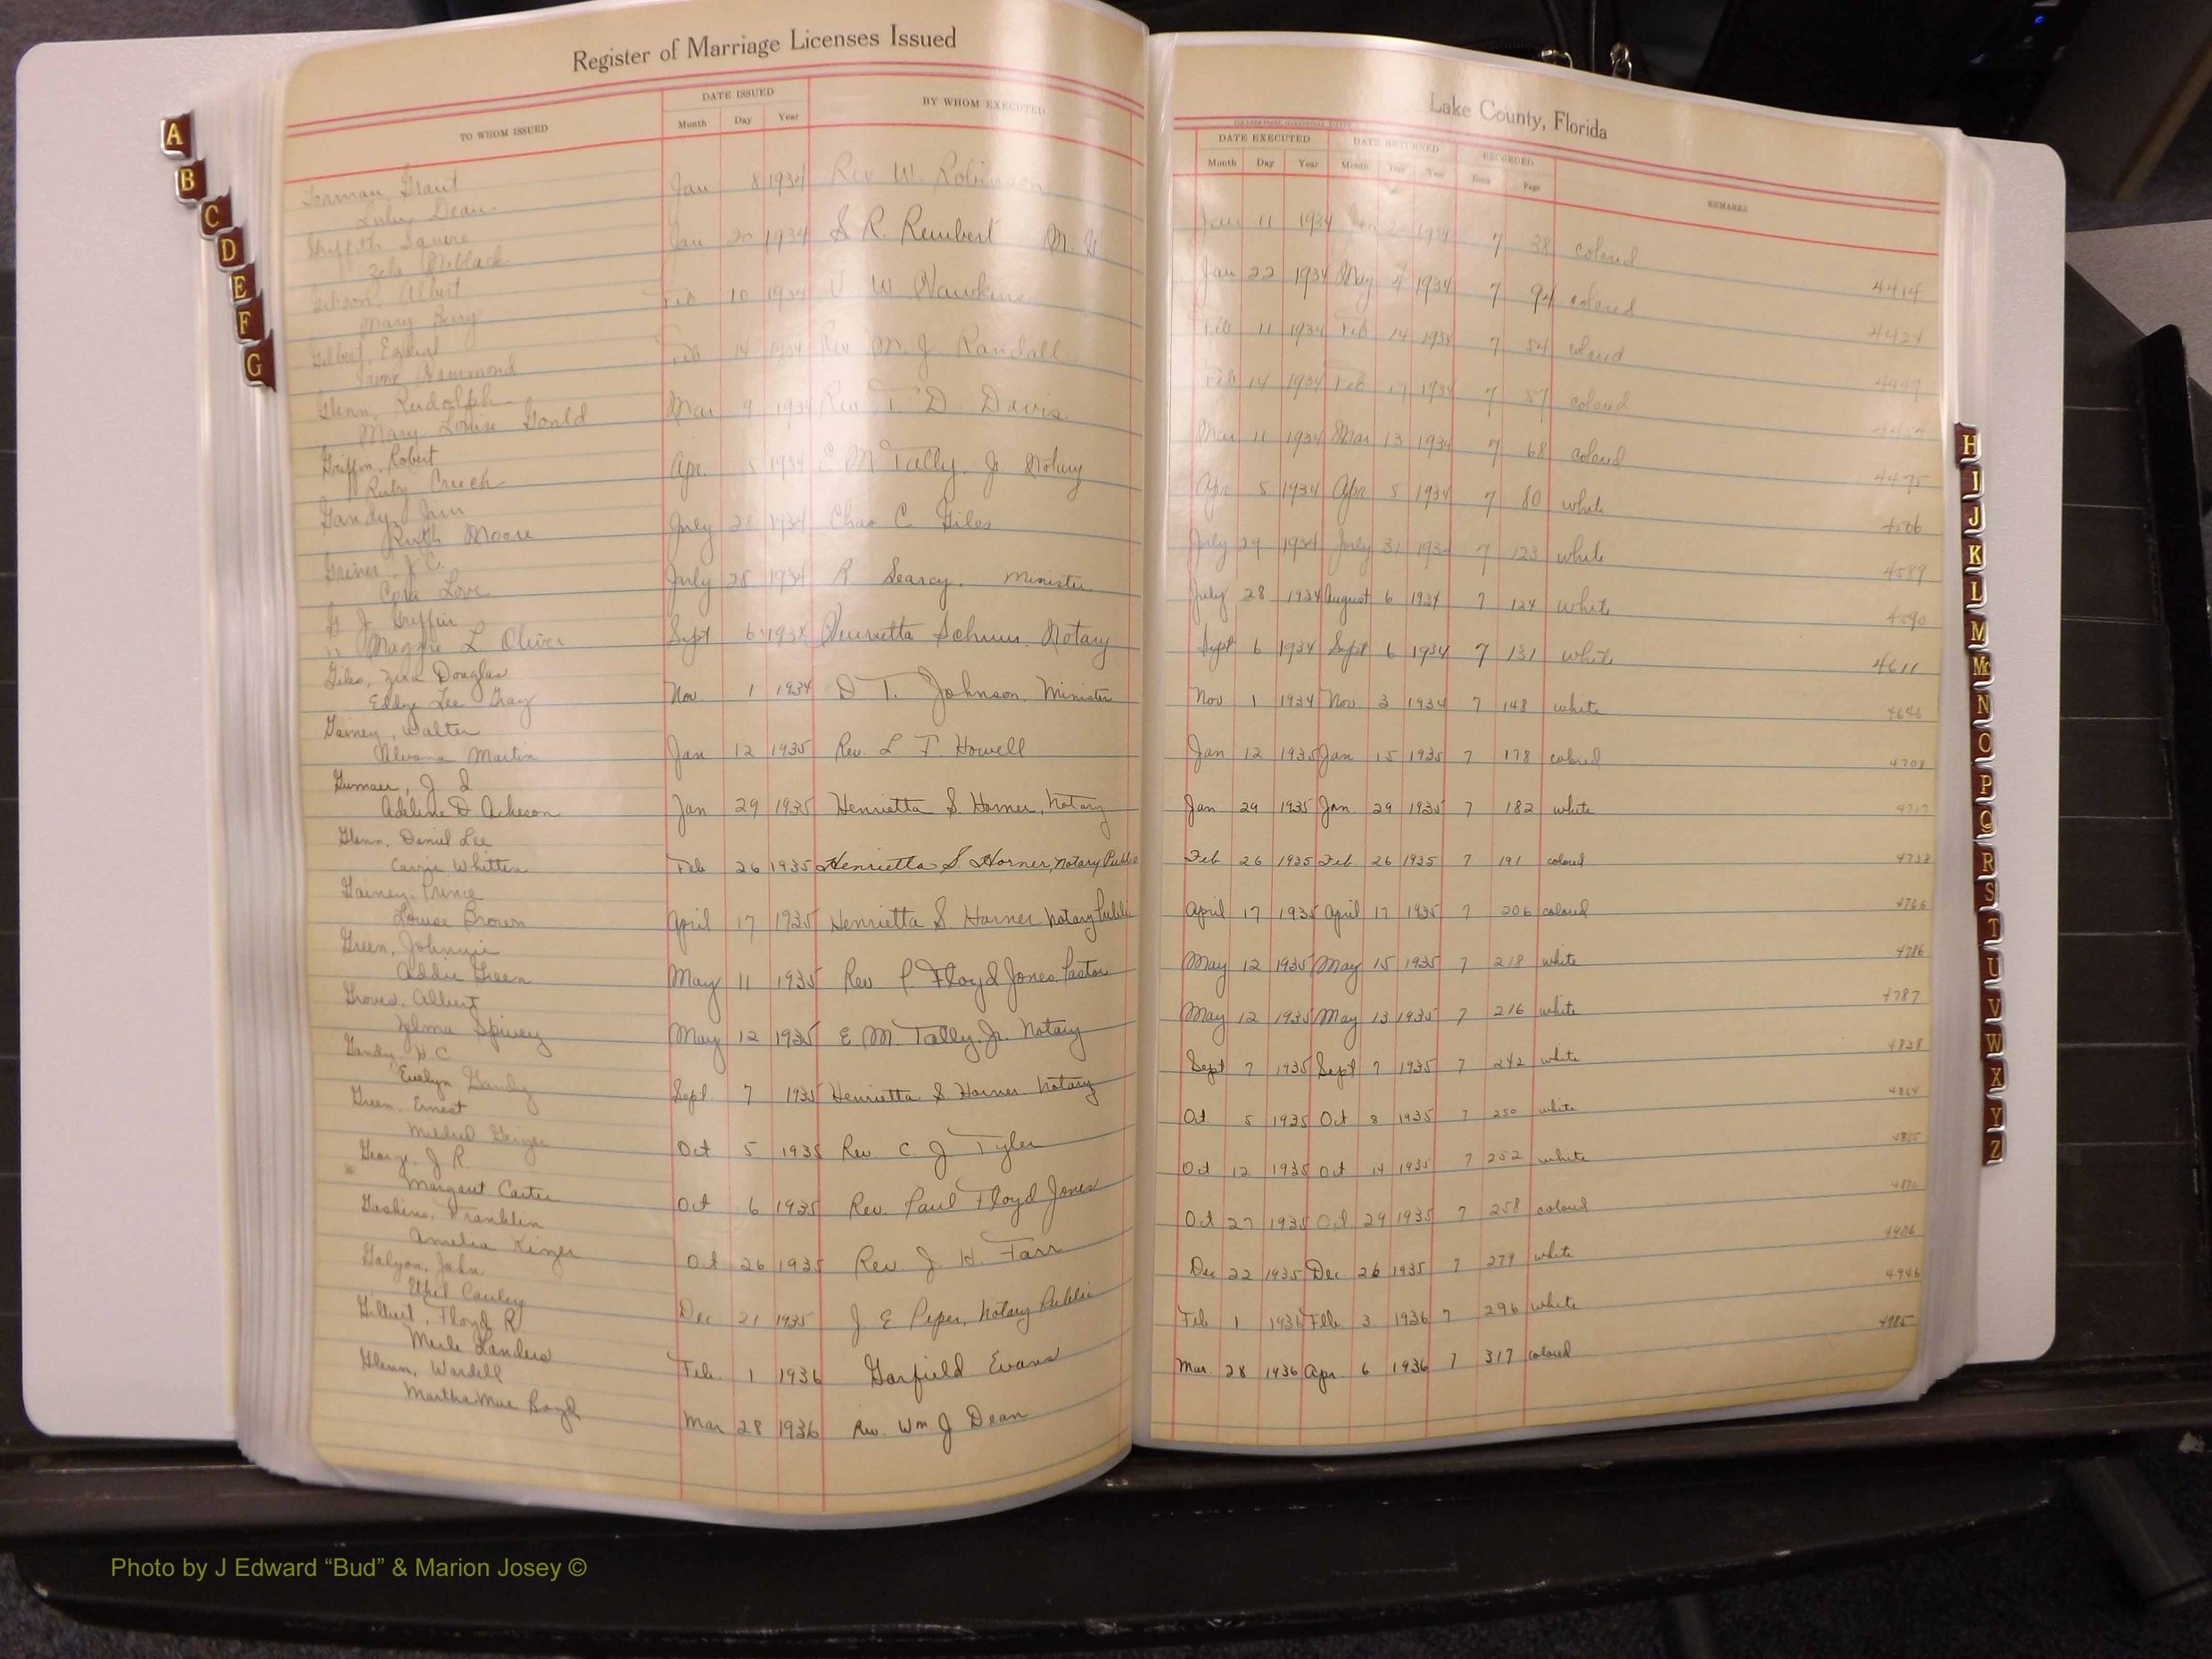 Register of Marriage Licenses Issued
TO WHOM ISSUED
DATE ISSUED
Month Day Year
BY WHOM EXECUTED
Grant Jan 8 1934 Rev W. Robinson
Dean
Griffith Squire Jan 20 1934 S. R. Rembert
Zela
Albert Feb 10 1934 W Hawkins
Mary Berry
Gilbert, Feb 14 1934 Rev M. J Randall
Hammond
Glenn, Rudolph Mar 9 1934 Rev T D. Davis
Mary Louise Gould
Griffin, Robert Apr. 5 1934 E M Tally. Jr Notary
Ruby
Gandy, Jim July 28 1934 Chas C. Giles
Ruth Moore
Gainer, J C. July 28 1934 R. Searcy. Minister
Cora Love
G. J. Griffin Sept 6 1934 Notary
" Maggie L Oliver
Giles, Douglas Nov. 1 1934 D T. Johnson, Minister
Eddye Lee Gray
Gainey, Walter Jan 12 1935 Rev. L F Howell
Martin
J S Jan 29 1935 Henrietta S. Horner, Notary
Adeline D Acheson
Glenn, Daniel Lee Feb 26 1935 Henrietta S. Horner, Notary Public
Carrie Whitten
Gainey, Prince April 17 1935 Henrietta S. Horner Notary Public
Louise Brown
Green, Johnnie May 11 1935 Rev P. Floyd Jones, Pastor
Addie Green
Groves, Albert May 12 1935 E M. Tally. Jr. Notary
Zelma Spivey
Gandy, H. C Sept. 7 1935 Henrietta S Horner Notary
Evelyn Gandy
Green, Ernest Oct 5 1935 Rev C. J. Tyler
Mildred Geiger
George, J R. Oct 6 1935 Rev. Paul Floyd Jones
Margaret Carter
Gaskins, Franklin Oct 26 1935 Rev. J. H. Farr
Amelia
Galyon, John Dec 21 1935 J E Piper, Notary Public
Ethel Cauley
Gilbert, Floyd R. Feb. 1 1936 Garfield Evans
Merle Landers
Glenn, Wardell Mar 28 1936 Rev. Wm J Dean
Martha Mae Boyd
Lake County, Florida
DATE EXECUTED
DATE RETURNED
RECORDED
Month Day Year Month Day Year Book Page
REMARKS
Jan 11 1934 Jan 1934 7 38 colored 4414
Jan 22 1934 May 4 1934 7 94 colored 4424
Feb 11 1934 Feb 14 1934 7 54 colored 4447
Feb 14 1934 Feb 17 1934 7 57 colored
Mar 11 1934 Mar 13 1934 7 68 colored 4475
Apr 5 1934 Apr 5 1934 7 80 white 4506
July 29 1934 July 31 1934 7 123 white 4589
July 28 1934 August 6 1934 7 124 white 4590
Sept 6 1934 Sept 6 1934 7 131 white 4611
Nov. 1 1934 Nov. 3 1934 7 148 white 4646
Jan 12 1935 Jan 15 1935 7 178 colored 4708
Jan. 29 1935 Jan. 29 1935 7 182 white
Feb 26 1935 Feb 26 1935 7 191 colored 4738
April 17 1935 April 17 1935 7 206 colored 4766
May 12 1935 May 15 1935 7 218 white 4786
May 12 1935 May 13 1935 7 216 white 4787
Sept 7 1935 Sept 7 1935 7 242 white 4838
Oct 5 1935 Oct 8 1935 7 250 white
Oct 12 1935 Oct 14 1935 7 252 white 4855
Oct 27 1935 Oct 29 1935 7 258 colored
Dec 22 1935 Dec 26 1935 7 279 white 4906
Feb 1 1936 Feb 3 1936 7 296 white 4946
Mar. 28 1936 Apr. 6 1936 7 317 colored 4985
A
B
C
D
E
F
G
H
I
J
K
L
M
Mc
N
O
P
Q
R
S
T
U
V
W
X
Y
Z
Photo by J Edward “Bud” & Marion Josey ©